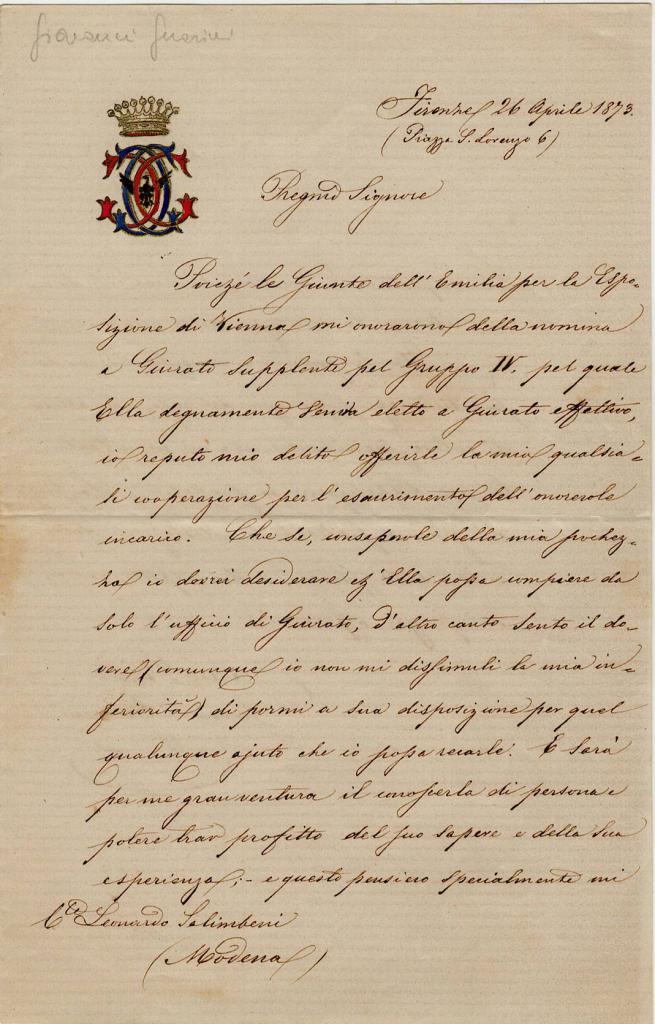 Giovanni Guarini
Firenze 26 Aprile 1873.
(Piazza S. Lorenzo 6)
Pregmo Signore
Poiché le Giunte dell'Emilia per la Espo-
sizione di Vienna mi onorarono della nomina
a Giurato supplente pel Gruppo IV. pel quale
Ella degnamente veniva eletto a Giurato effettivo,
io reputo mio debito offerirle la mia qualsia-
si cooperazione per l'esaurimento dell'onorevole
incarico. Che se, consapevole della mia pochez-
za io dovrei desiderare ch'Ella possa compiere da
solo l'ufficio di Giurato, d'altro canto sento il do-
vere (comunque io non mi dissimuli la mia in-
feriorità) di pormi a sua disposizione per quel
qualunque ajuto che io possa recarle. E sarà
per me gran ventura il conoscerla di persona e
potere trar profitto del suo sapere e della sua
esperienza; - e questo pensiero specialmente mi
Cte Leonardo Salimbeni
(Modena)